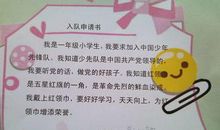 入队申请书
我是一年级小学生，我要求加入中国少年
先锋队、我知道少先队是中国共产党领导的，
我要听党的话，做党的好孩子。我知道红领巾
是五星红旗的一角，是革命先烈的鲜血染成，
我戴上红领巾，要好好学习，天天向上，为红
领巾增添荣誉。